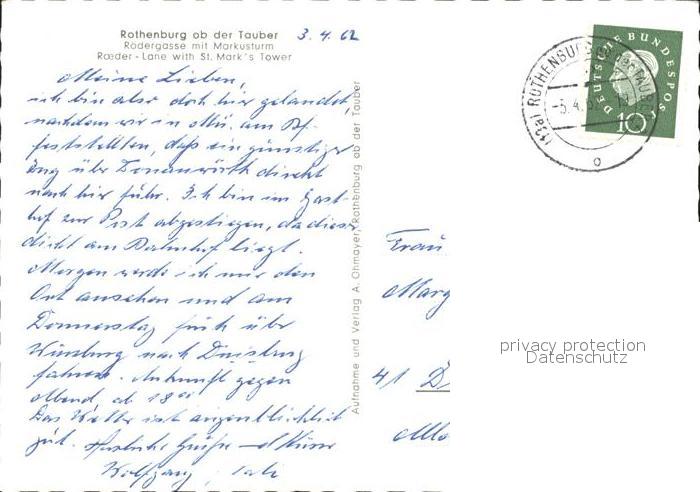 Rothenburg ob der Tauber
Rödergasse mit Markusturm
Rœder-Lane with St. Mark's Tower
3.4.62
Meine Lieben,
ich bin also doch hier gelandet,
nachdem wir in Mü. am Bf.
feststellten, daß ein günstiger
Zug über Donauwörth direkt
nach hier führ. Ich bin im Gast-
hof zur Post abgestiegen, da dieser
dicht am Bahnhof liegt.
Morgen werde ich mir den
Ort ansehen und am
Donnerstag früh über
Würzburg nach Duisburg
fahren. Ankunft gegen
Abend, ab 18
Das Wetter ist augenblicklich
gut. Herzliche Grüße
Wolfgang
Aufnahme und Verlag A. Ohmayer, Rothenburg ob der Tauber
(13a) ROTHENBURG ob der TAUBER
-3.4.
DEUTSCHE BUNDESPOST
10
Frau
Marg
41 D
privacy protection
Datenschutz